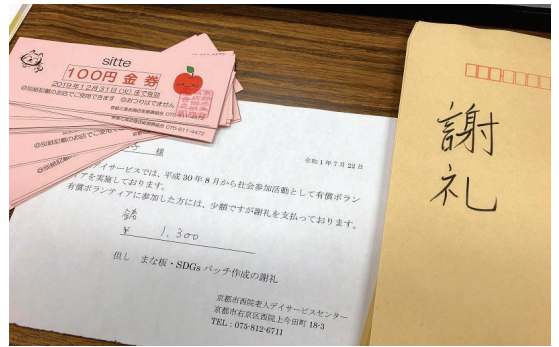 sitte
100円金券
2019年12月31日(火)まで有効
※別紙記載のお店でご使用できます ※おつりはでません
075-811-4472
様
令和1年7月22日
デイサービスでは、平成30年8月から社会参加活動として有償ボラン
ティアを実施しております。
有償ボランティアに参加した方には、少額ですが謝礼を支払っております。
¥ 1,300
但し まな板・SDGsバッチ作成の謝礼
京都市西院老人デイサービスセンター
京都市右京区西院上今田町18-3
TEL:075-812-6711
謝礼